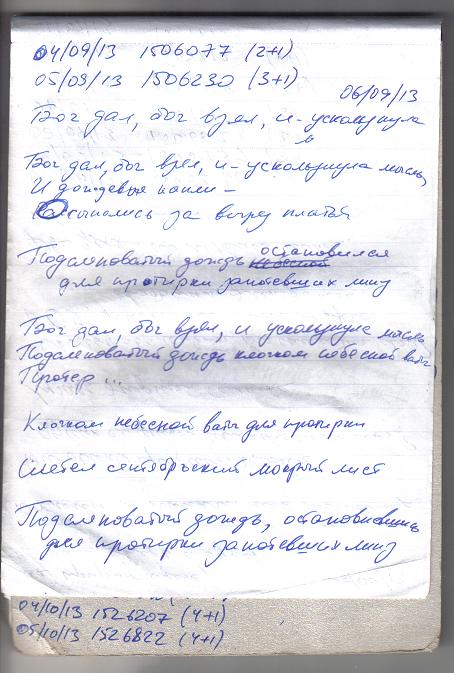 04/09/13 1506077 (2+1)
05/09/13 1506230 (3+1)
06/09/13
Бог дал, бог взял, и - ускользнула
Бог дал, бог взял, и - ускользнула мысль,
И дождевые капли -
сыпались за вырез платья
Подслеповатый дождь небесной остановился
для протирки запотевших линз
Бог дал, бог взял, и ускользнула мысль
Подслеповатый дождь клочком небесной ваты
Протёр ...
Клочком небесной ваты для протирки
Слетел сентябрьский мокрый лист
Подслеповатый дождь, остановившись
для протирки запотевших линз
04/10/13 1526207 (4+1)
05/10/13 1526822 (4+1)